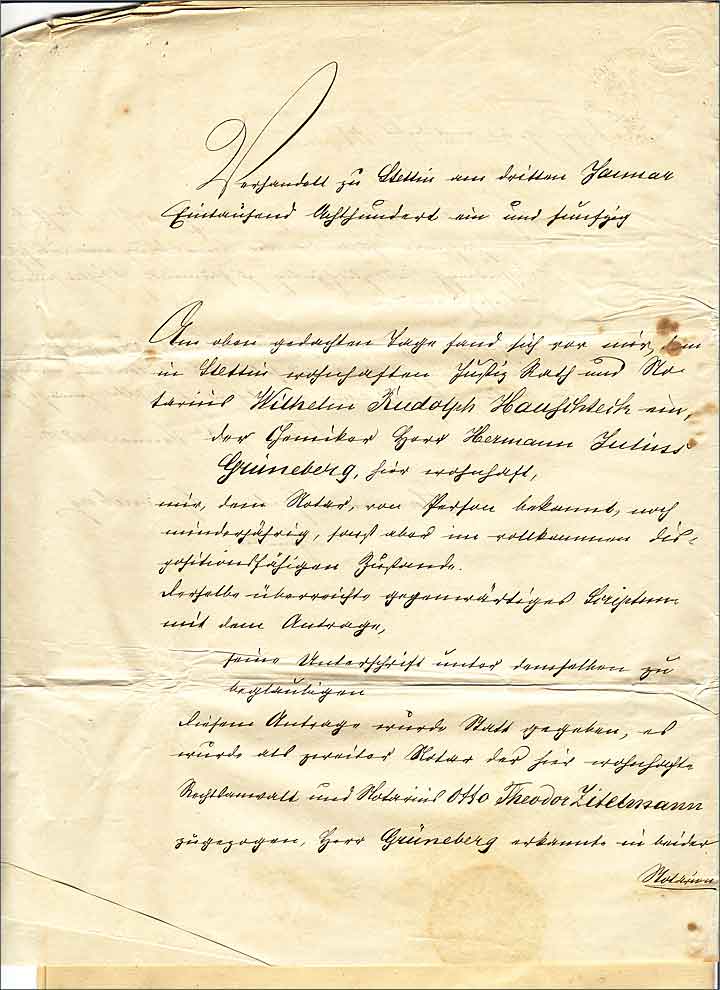 Verhandelt zu Stettin am dritten Januar
Eintausend Achthundert ein und funfzig
Am oben gedachten Tage fand sich vor mir, dem
in Stettin wohnhaften Justiz Rath und No-
tarius Wilhelm Rudolph Hauschteck ein,
der Chemiker Herr Hermann Julius
Grüneberg, hier wohnhaft,
mir, dem Notar, von Person bekannt, noch
minderjährig, sonst aber im vollkommen dis-
positionsfähigen Zustande.
Derselbe überreichte gegenwärtiges Scriptum
mit dem Antrage,
seine Unterschrift unter demselben zu
beglaubigen
Diesem Antrage wurde Statt gegeben, es
wurde als zweiter Notar der hier wohnhafte
Rechtsanwalt und Notarius Otto Theodor Zitelmann
zugezogen, Herr Grüneberg erkannte in beider
Notarien